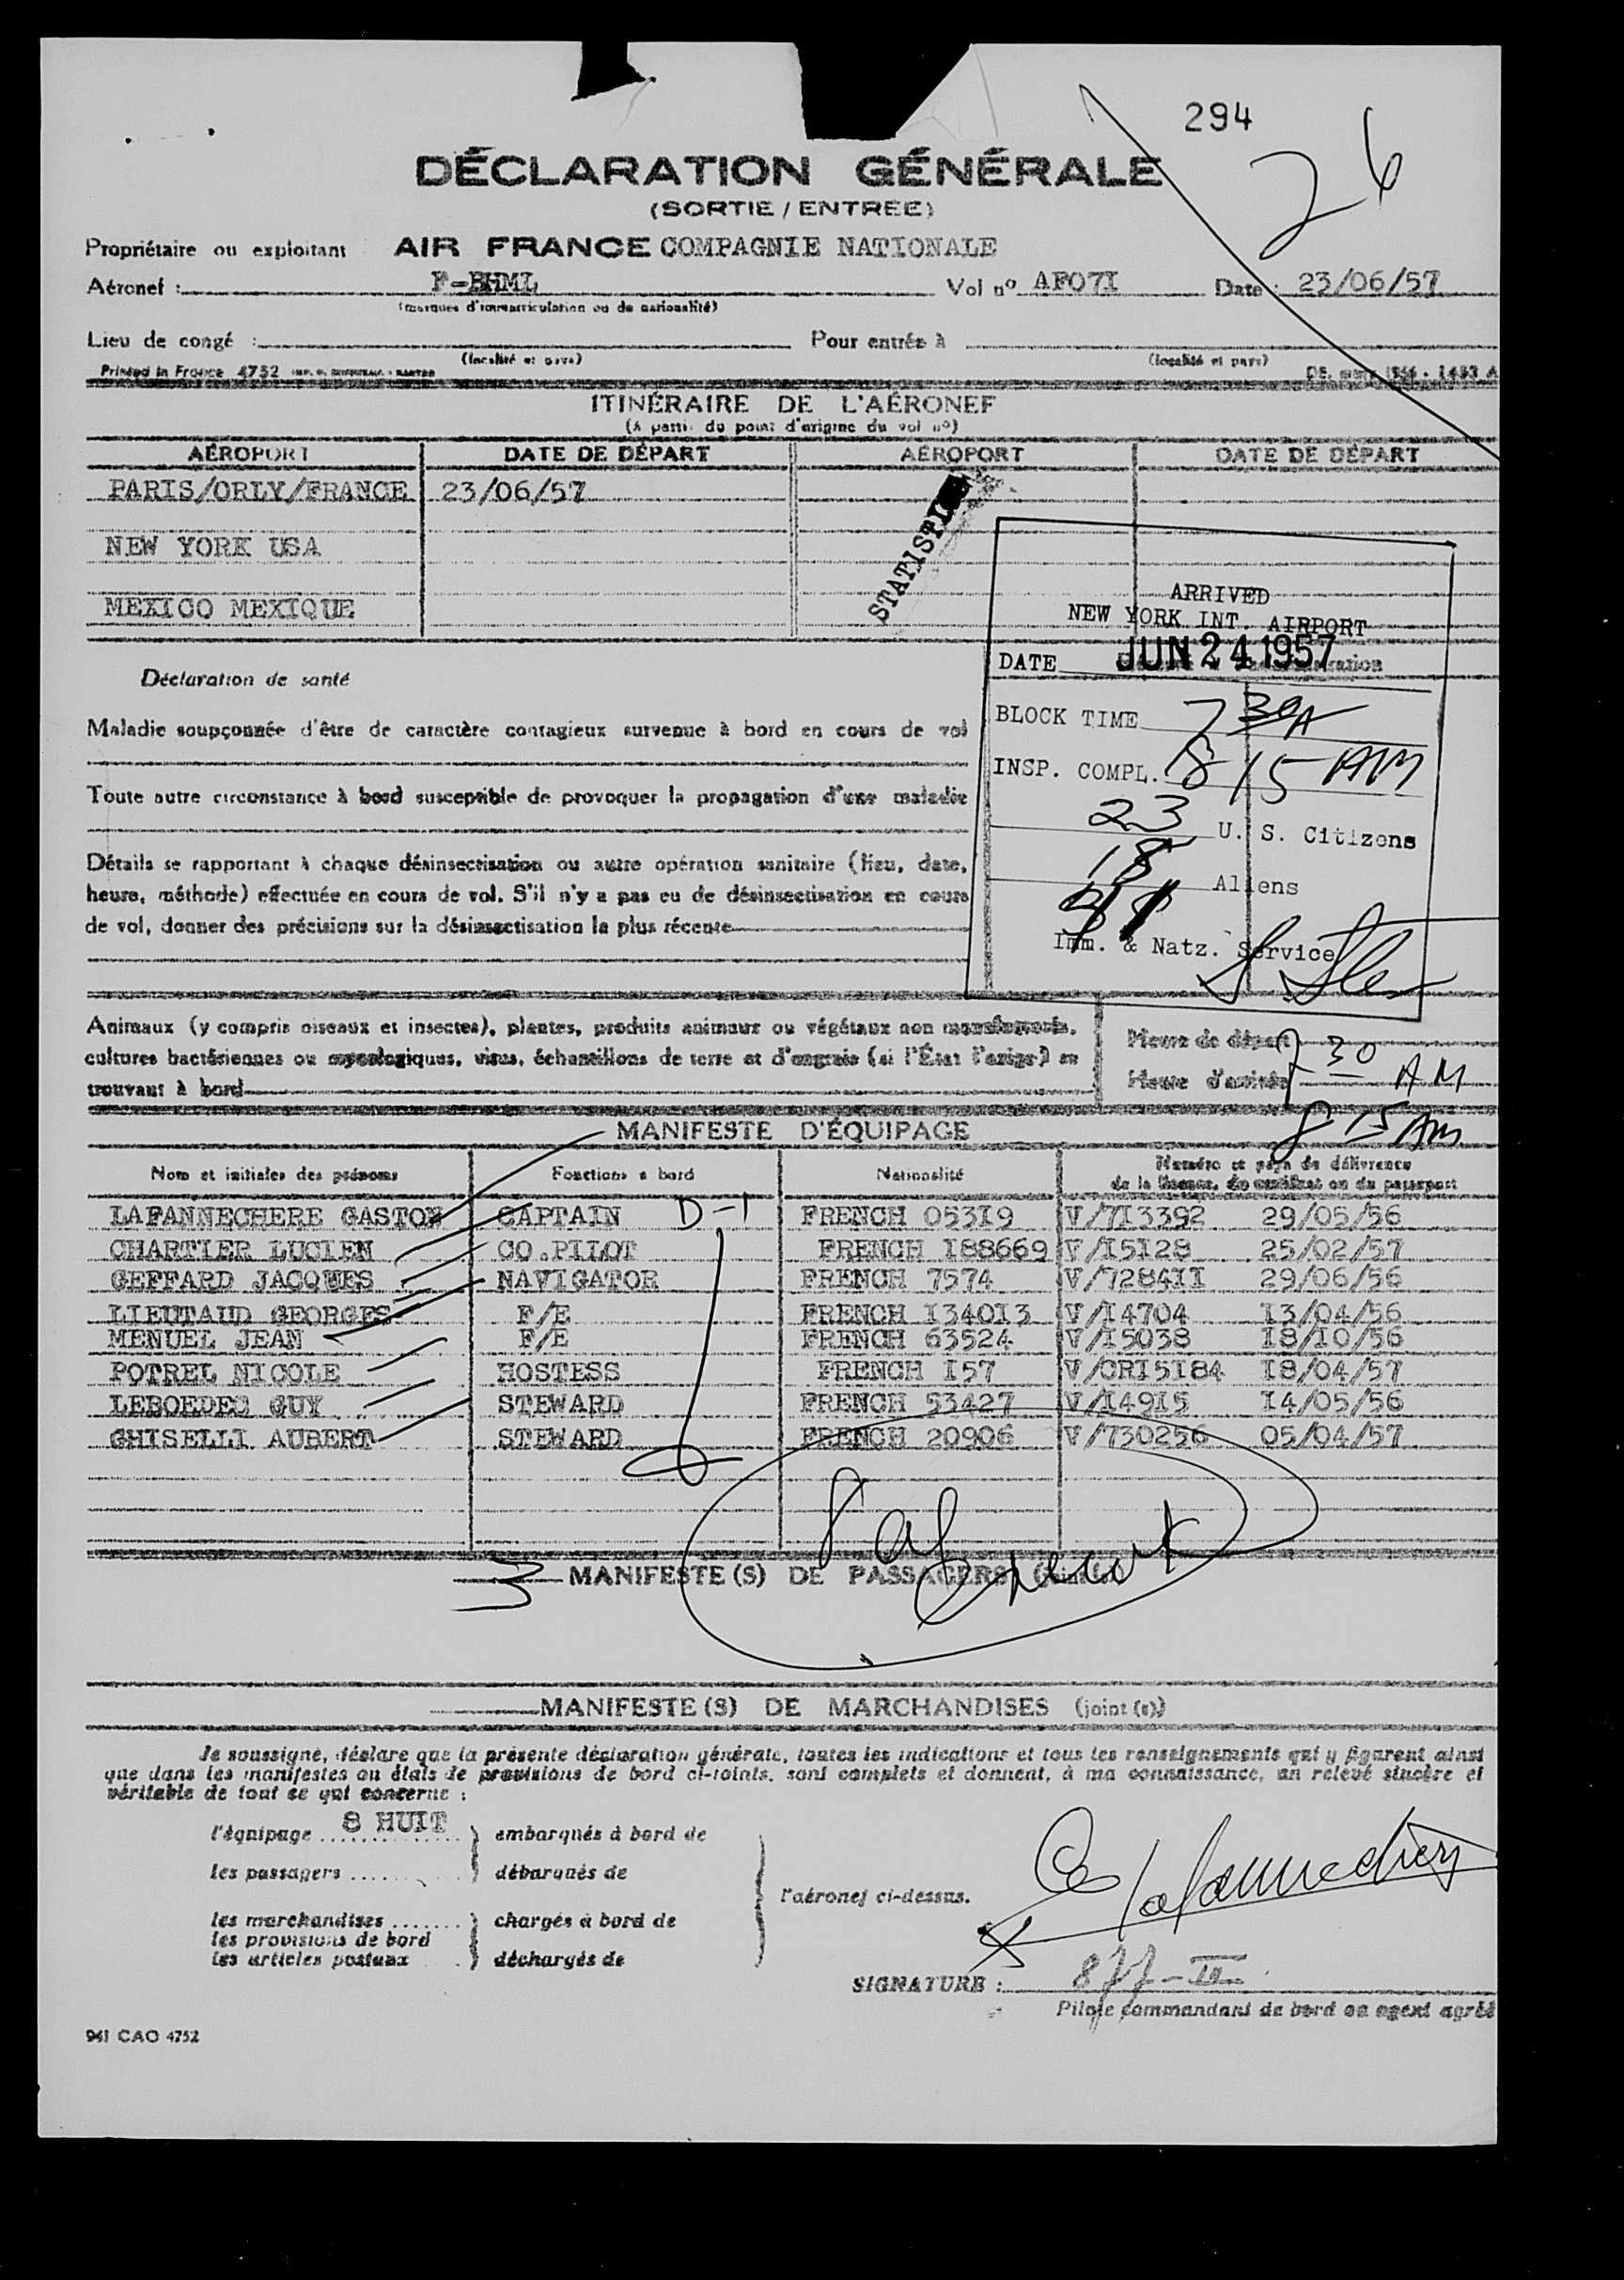 294
26
DÉCLARATION GÉNÉRALE
(SORTIE / ENTRÉE)
Propriétaire ou exploitant AIR FRANCE COMPAGNIE NATIONALE
Aéronef : F-BHML Vol nº AF07I Date : 23/06/57
(marques d'immatriculation ou de nationalité)
Lieu de congé : Pour entrée à
(localité et pays) (localité et pays)
Printed in France 4752
ITINÉRAIRE DE L'AÉRONEF
(à partir du point d'origine du vol nº)
AÉROPORT DATE DE DÉPART AÉROPORT DATE DE DÉPART
PARIS/ORLY/FRANCE 23/06/57
NEW YORK USA
MEXICO MEXIQUE
ARRIVED
NEW YORK INT. AIRPORT
DATE JUN 24 1957
BLOCK TIME 7 30A
INSP. COMPL. 8 15 AM
23 U. S. Citizens
18 Aliens
Imm. & Natz. Service
Déclaration de santé
Maladie soupçonnée d'être de caractère contagieux survenue à bord en cours de vol
Toute autre circonstance à bord susceptible de provoquer la propagation d'une maladie
Détails se rapportant à chaque désinsectisation ou autre opération sanitaire (lieu, date,
heure, méthode) effectuée en cours de vol. S'il n'y a pas eu de désinsectisation en cours
de vol, donner des précisions sur la désinsectisation la plus récente
Animaux (y compris oiseaux et insectes), plantes, produits animaux ou végétaux non manufacturés,
cultures bactériennes ou mycologiques, virus, échantillons de terre et d'engrais (si l'État l'exige) se
trouvant à bord
Heure de départ 7 30
Heure d'arrivée AM
8 15 AM
MANIFESTE D'ÉQUIPAGE
Nom et initiales des prénoms Fonctions à bord Nationalité Numéro et pays de délivrance
de la licence, du certificat ou du passeport
LAFANNECHERE GASTON CAPTAIN D-1 FRENCH 053I9 V/7I3392 29/05/56
CHARTIER LUCIEN CO.PILOT FRENCH I88669 V/I5128 25/02/57
GEFFARD JACQUES NAVIGATOR FRENCH 7574 V/7284II 29/06/56
LIEUTAUD GEORGES F/E FRENCH I340I3 V/I4704 I3/04/56
MENUEL JEAN F/E FRENCH 63524 V/I5038 I8/I0/56
POTREL NICOLE HOSTESS FRENCH I57 V/CRI5I84 I8/04/57
LEBOEDEC GUY STEWARD FRENCH 53427 V/I49I5 I4/05/56
GHISELLI AUBERT STEWARD FRENCH 20906 V/730256 05/04/57
3 MANIFESTE(S) DE PASSAGERS
MANIFESTE(S) DE MARCHANDISES (joint (s))
Je soussigné, déclare que la présente déclaration générale, toutes les indications et tous les renseignements qui y figurent ainsi
que dans les manifestes ou états de provisions de bord ci-joints, sont complets et donnent, à ma connaissance, un relevé sincère et
véritable de tout ce qui concerne :
l'équipage 8 HUIT embarqués à bord de
les passagers débarqués de
l'aéronef ci-dessus.
les marchandises chargés à bord de
les provisions de bord
les articles postaux déchargés de
SIGNATURE :
Pilote commandant de bord ou agent agréé
941 CAO 4752